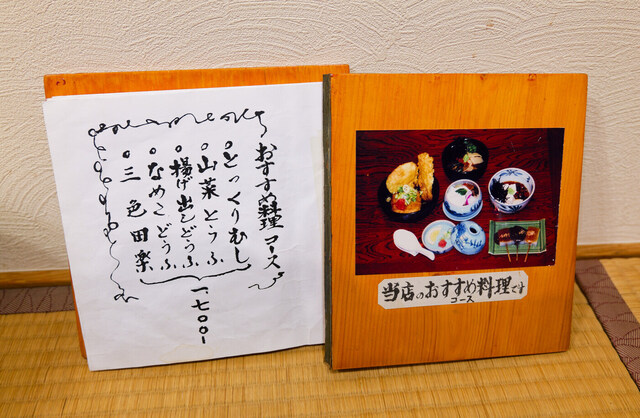 おすすめ料理コース
。とっくりむし
。山菜とうふ
。揚げ出しどうふ
。なめこどうふ
。三色田楽
一、七〇〇-
当店のおすすめ料理です
コース